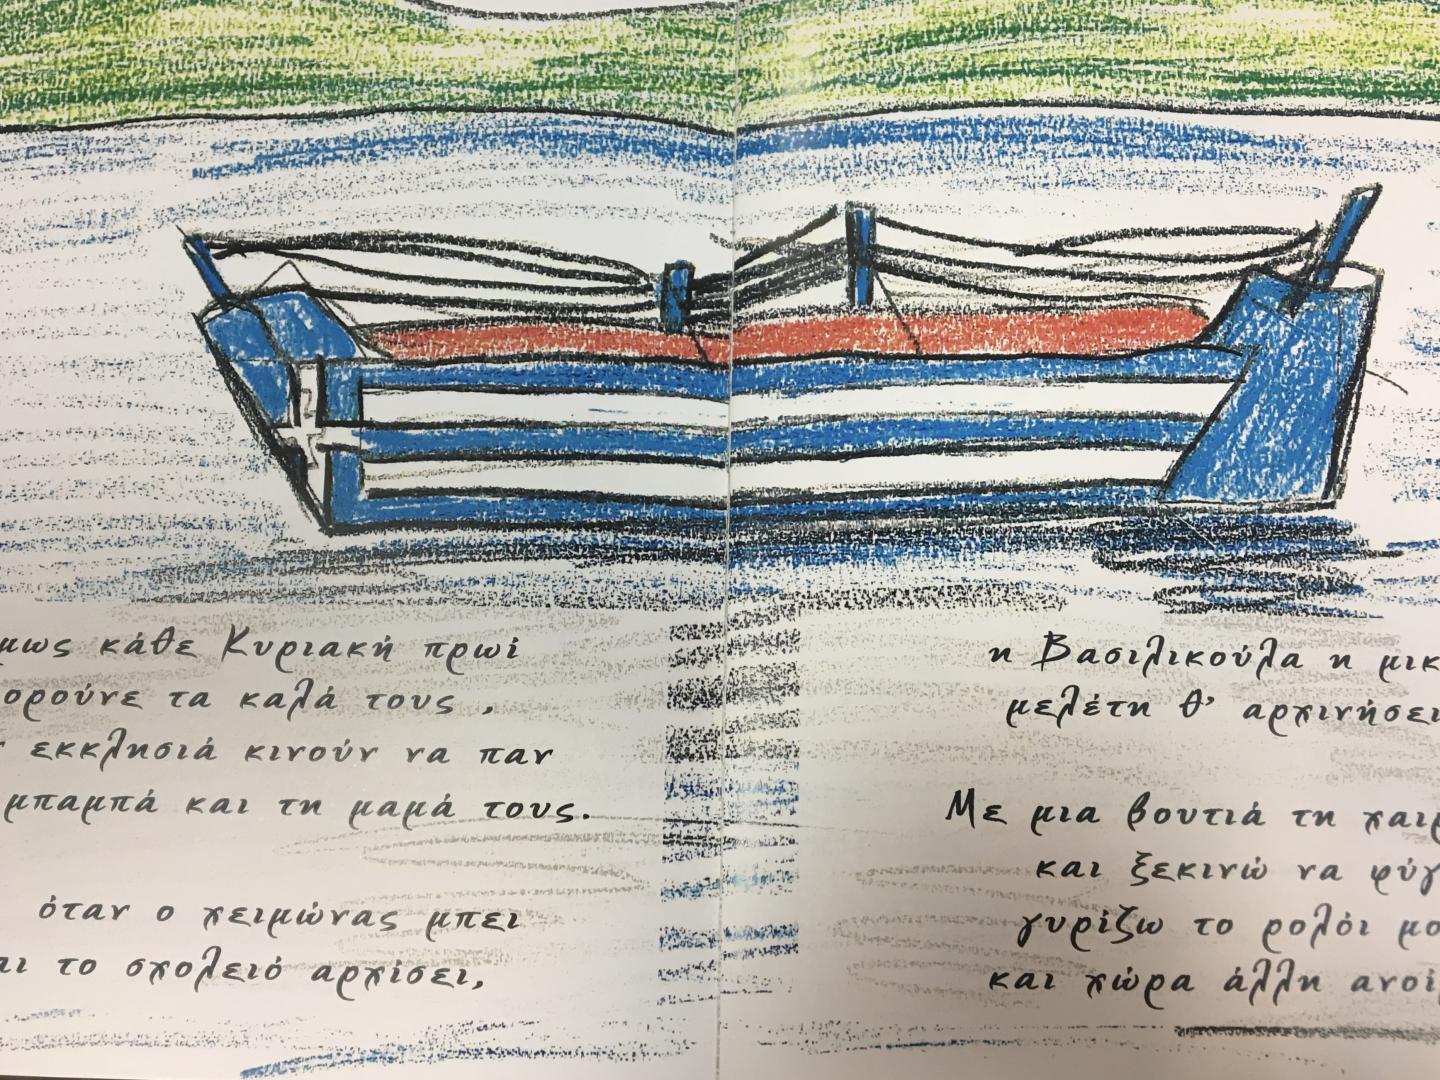 μως κάθε Κυριακή πρωί
ορούνε τα καλά τους ,
εκκλησιά κινούν να παν
μπαμπά και τη μαμά τους.
όταν ο χειμώνας μπει
αι το σχολειό αρχίσει,
η Βασιλικούλα η μικ
μελέτη θ' αρχινήσει
Με μια βουτιά τη χαιρ
και ξεκινώ να φύγ
γυρίζω το ρολόι μο
και χώρα άλλη ανοί